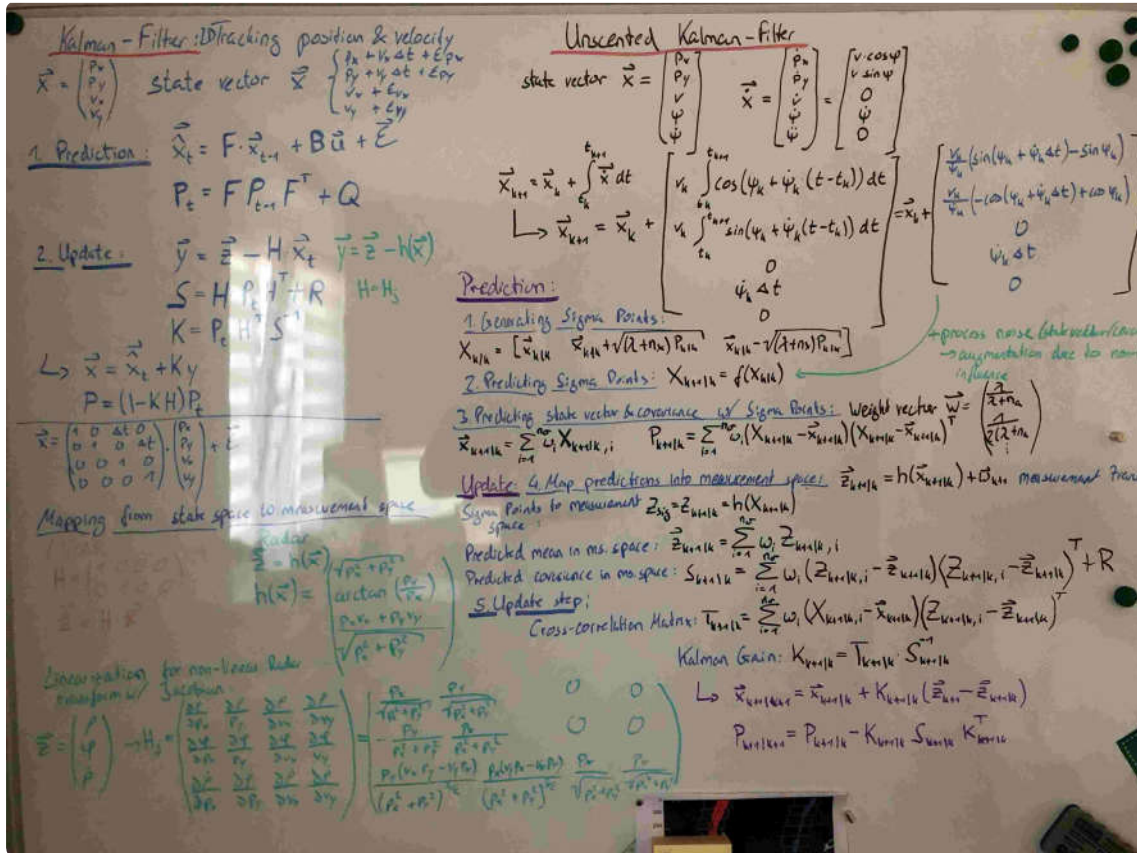 Kalman-Filter: 2D Tracking position & velocity
x⃗ = (p_x p_y v_x v_y) state vector x⃗ { p_x + v_x Δt + ε_px
p_y + v_y Δt + ε_py
v_x + ε_vx
v_y + ε_vy
1. Prediction: x̂⃗_t = F · x⃗_t-1 + B u⃗ + ε⃗
P_t = F P_t-1 F^T + Q
2. Update: y⃗ = z⃗ - H x̂⃗_t y⃗ = z⃗ - h(x⃗)
S = H P_t H^T + R H=H_J
K = P_t H^T S^-1
↳ x⃗ = x̂⃗_t + K y
P = (1-KH) P_t
x⃗ = (1 0 Δt 0
0 1 0 Δt
0 0 1 0
0 0 0 1) · (p_x p_y v_x v_y) + ε⃗
Mapping from state space to measurement space
Radar
z⃗ = h(x⃗)
h(x⃗) = (√(p_x² + p_y²)
arctan (p_y/p_x)
(p_x v_x + p_y v_y)/√(p_x² + p_y²))
Linearization for non-linear Radar
Jacobian
z⃗ = (ρ φ ρ̇) → H_J = (∂ρ/∂p_x ∂ρ/∂p_y ∂ρ/∂v_x ∂ρ/∂v_y
∂φ/∂p_x ∂φ/∂p_y ∂φ/∂v_x ∂φ/∂v_y
∂ρ̇/∂p_x ∂ρ̇/∂p_y ∂ρ̇/∂v_x ∂ρ̇/∂v_y)
= (p_x/√(p_x²+p_y²) p_y/√(p_x²+p_y²) 0 0
-p_y/(p_x²+p_y²) p_x/(p_x²+p_y²) 0 0
p_y(v_x p_y - v_y p_x)/(p_x²+p_y²)^3/2 p_x(v_y p_x - v_x p_y)/(p_x²+p_y²)^3/2 p_x/√(p_x²+p_y²) p_y/√(p_x²+p_y²))
Unscented Kalman-Filter
state vector x⃗ = [p_x p_y v ψ ψ̇] ẋ⃗ = [ṗ_x ṗ_y v̇ ψ̇ ψ̈] = [v·cosψ v sinψ 0 ψ̇ 0]
x⃗_k+1 = x⃗_k + ∫_t_k^t_k+1 ẋ⃗ dt
↳ x⃗_k+1 = x⃗_k + [v_k ∫_t_k^t_k+1 cos(ψ_k + ψ̇_k (t-t_k)) dt
v_k ∫_t_k^t_k+1 sin(ψ_k + ψ̇_k (t-t_k)) dt
0
ψ̇_k Δt
0]
= x⃗_k + [v_k/ψ̇_k (sin(ψ_k + ψ̇_k Δt) - sin ψ_k)
v_k/ψ̇_k (-cos(ψ_k + ψ̇_k Δt) + cos ψ_k)
0
ψ̇_k Δt
0]
+ process noise (state vector/
→ augmentation due to
influence
Prediction:
1. Generating Sigma Points:
X_k|k = [x⃗_k|k x⃗_k|k + √((λ+n_x) P_k|k) x⃗_k|k - √((λ+n_x) P_k|k)]
2. Predicting Sigma Points: X_k+1|k = f(X_k|k)
3. Predicting state vector & covariance w/ Sigma Points: Weight vector w⃗ = (λ/(λ+n_a)
1/(2(λ+n_a)
⋮)
x⃗_k+1|k = Σ_i=1^nσ ω_i X_k+1|k,i P_k+1|k = Σ_i=1^nσ ω_i (X_k+1|k - x⃗_k+1|k)(X_k+1|k - x⃗_k+1|k)^T
Update: 4. Map predictions into measurement space: z⃗_k+1|k = h(x⃗_k+1|k) + ω⃗_k+1 measurement
Sigma Points to measurement Z_sig = Z_k+1|k = h(X_k+1|k)
space:
Predicted mean in ms. space: z⃗_k+1|k = Σ_i=1^nσ ω_i Z_k+1|k,i
Predicted covariance in ms. space: S_k+1|k = Σ_i=1^nσ ω_i (Z_k+1|k,i - z⃗_k+1|k)(Z_k+1|k,i - z⃗_k+1|k)^T + R
5. Update step:
Cross-correlation Matrix: T_k+1|k = Σ_i=1^nσ ω_i (X_k+1|k,i - x⃗_k+1|k)(Z_k+1|k,i - z⃗_k+1|k)^T
Kalman Gain: K_k+1|k = T_k+1|k · S^-1_k+1|k
↳ x⃗_k+1|k+1 = x⃗_k+1|k + K_k+1|k (z⃗_k+1 - z⃗_k+1|k)
P_k+1|k+1 = P_k+1|k - K_k+1|k S_k+1|k K^T_k+1|k